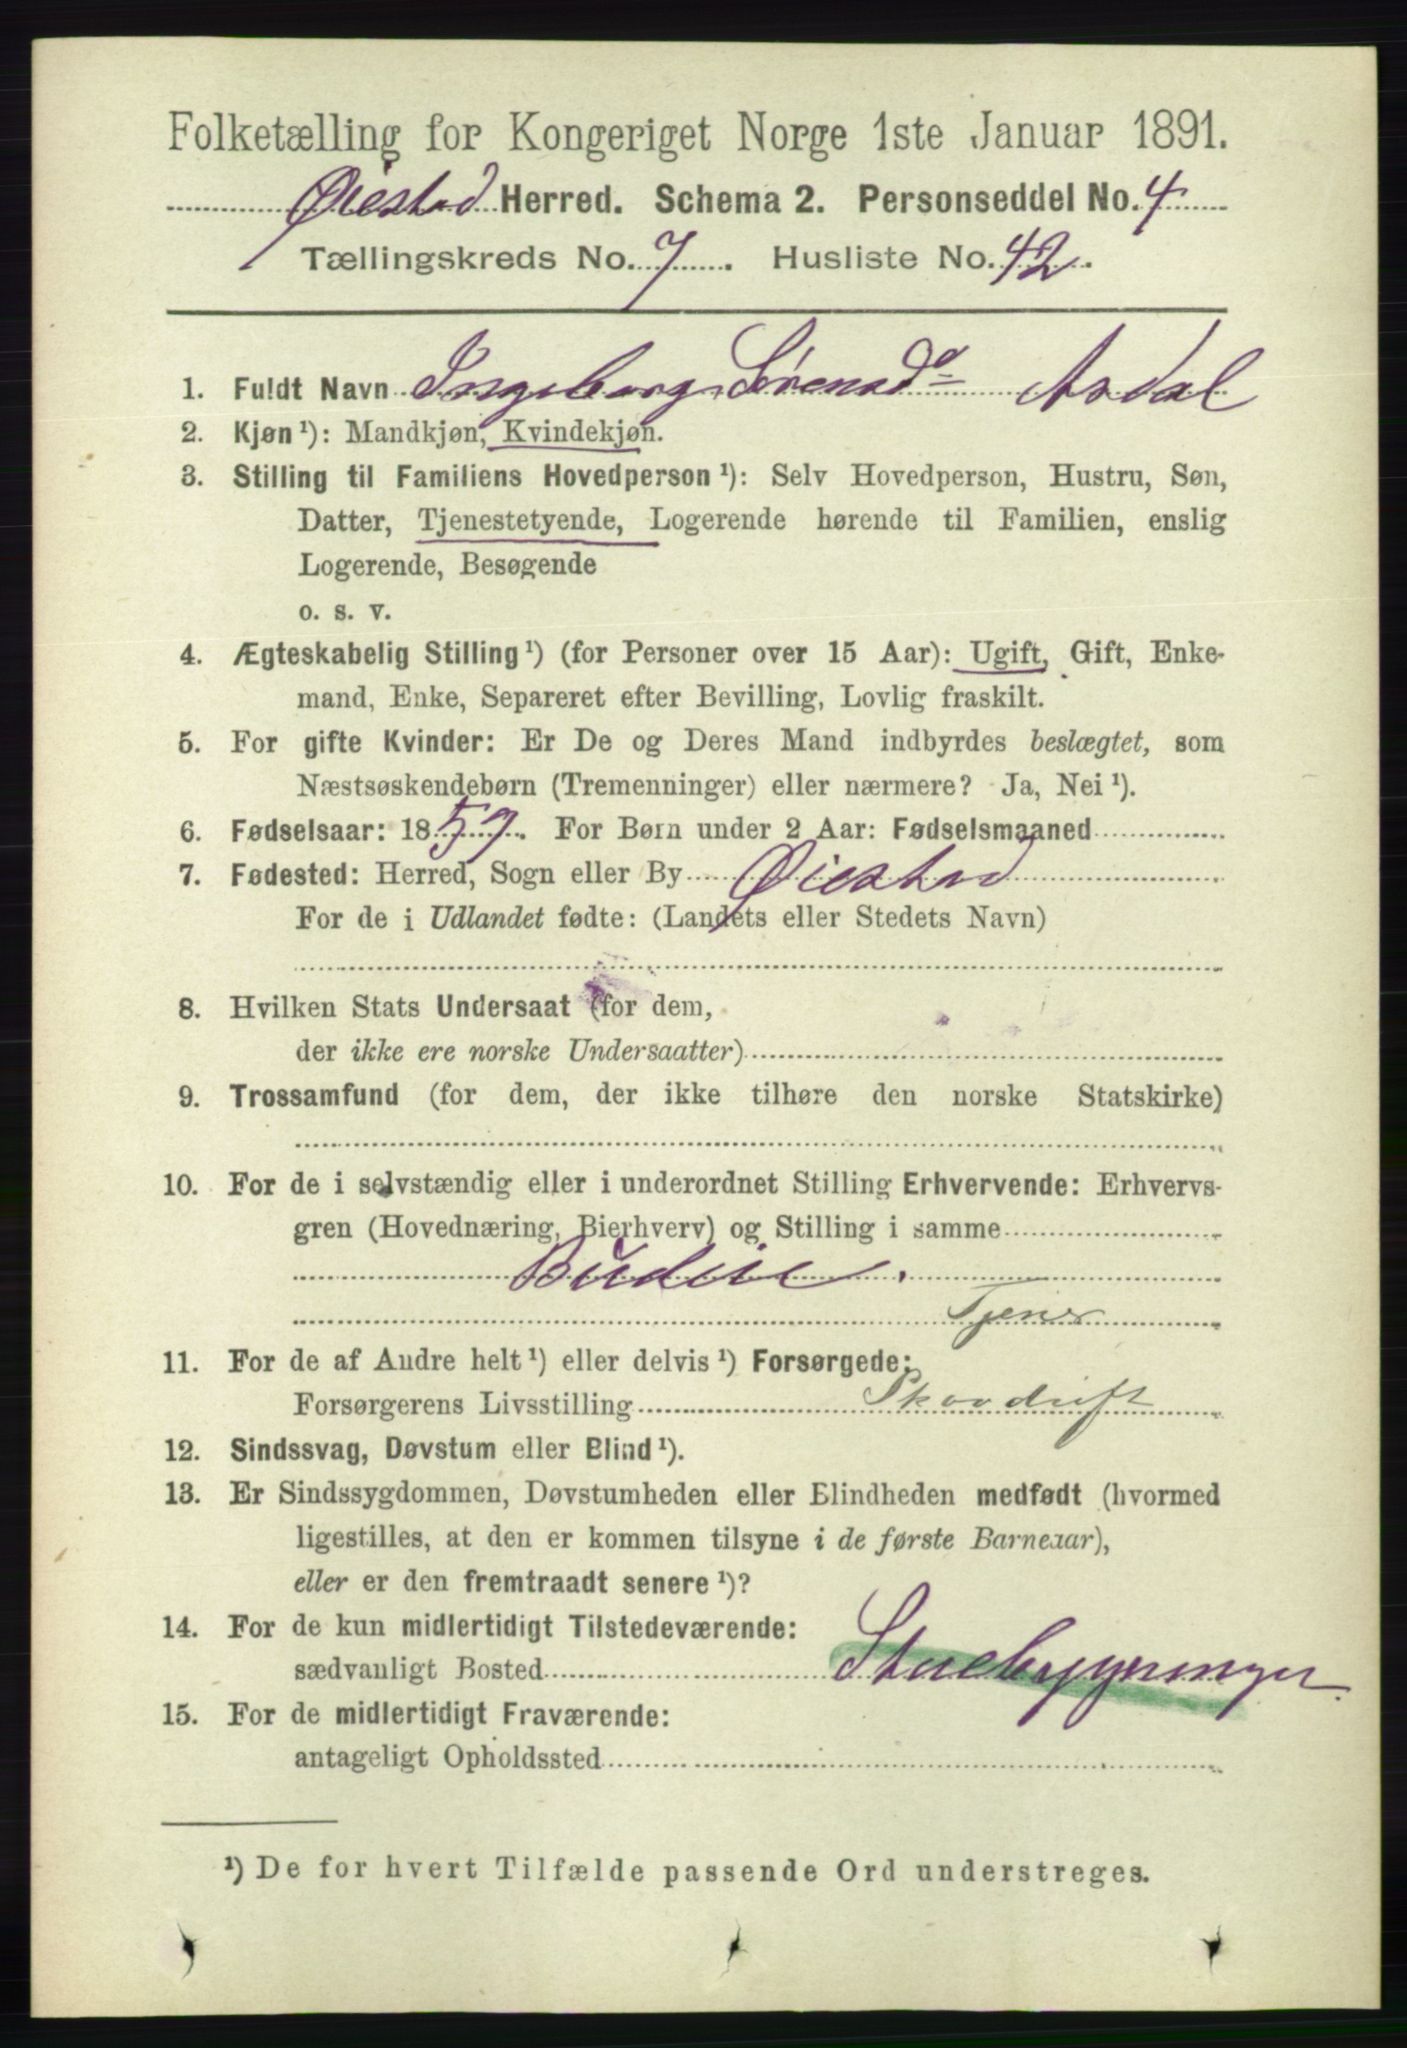 Folketælling for Kongeriget Norge 1ste Januar 1891.
Øiestad Herred. Schema 2. Personseddel No. 4
Tællingskreds No. 7. Husliste No. 42.
1. Fuldt Navn Ingeborg Sørensdr Asdal
2. Kjøn ¹): Mandkjøn, Kvindekjøn.
3. Stilling til Familiens Hovedperson ¹): Selv Hovedperson, Hustru, Søn,
Datter, Tjenestetyende, Logerende hørende til Familien, enslig
Logerende, Besøgende
o. s. v.
4. Ægteskabelig Stilling ¹) (for Personer over 15 Aar): Ugift, Gift, Enke-
mand, Enke, Separeret efter Bevilling, Lovlig fraskilt.
5. For gifte Kvinder: Er De og Deres Mand indbyrdes beslægtet, som
Næstsøskendebørn (Tremenninger) eller nærmere? Ja, Nei ¹).
6. Fødselsaar: 1859. For Børn under 2 Aar: Fødselsmaaned
7. Fødested: Herred, Sogn eller By Øiestad
For de i Udlandet fødte: (Landets eller Stedets Navn)
8. Hvilken Stats Undersaat (for dem,
der ikke ere norske Undersaatter)
9. Trossamfund (for dem, der ikke tilhøre den norske Statskirke)
10. For de i selvstændig eller i underordnet Stilling Erhvervende: Erhvervs-
gren (Hovednæring, Bierhverv) og Stilling i samme
Budeie.
Tjener
11. For de af Andre helt ¹) eller delvis ¹) Forsørgede:
Forsørgerens Livsstilling Skovdrift
12. Sindssvag, Døvstum eller Blind ¹).
13. Er Sindssygdommen, Døvstumheden eller Blindheden medfødt (hvormed
ligestilles, at den er kommen tilsyne i de første Barneaar),
eller er den fremtraadt senere ¹)?
14. For de kun midlertidigt Tilstedeværende:
sædvanligt Bosted Stuebygninger
15. For de midlertidigt Fraværende:
antageligt Opholdssted
¹) De for hvert Tilfælde passende Ord understreges.